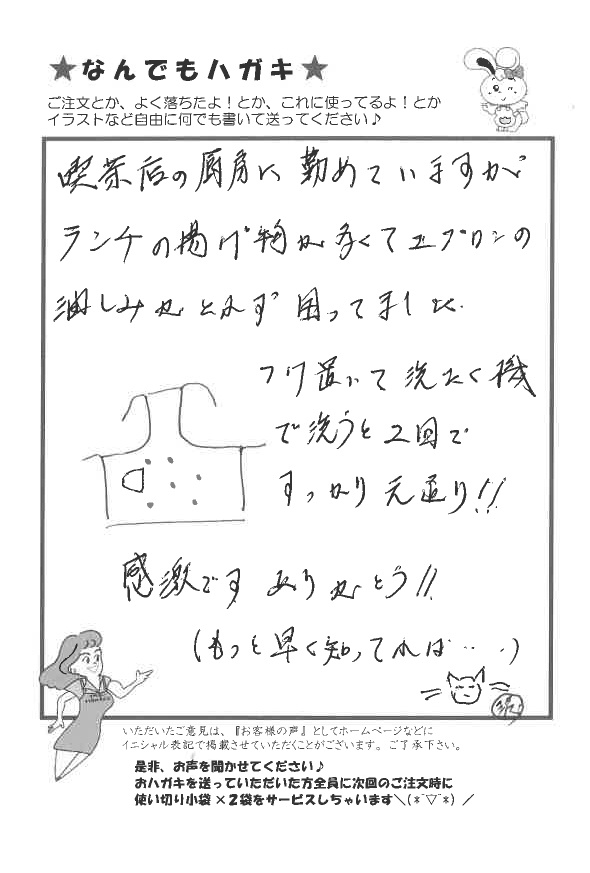 ★なんでもハガキ★
ご注文とか、よく落ちたよ！とか、これに使ってるよ！とか
イラストなど自由に何でも書いて送ってください♪
喫茶店の厨房に勤めていますが
ランチの揚げ物が多くてエプロンの
油しみがとれず困ってました。
つけ置いて洗たく機
で洗うと2回で
すっかり元通り!!
感激です ありがとう!!
(もっと早く知ってれば・・・)
いただいたご意見は、『お客様の声』としてホームページなどに
イニシャル表記で掲載させていただくことがございます。ご了承下さい。
是非、お声を聞かせてください♪
おハガキを送っていただいた方全員に次回のご注文時に
使い切り小袋×2袋をサービスしちゃいます＼(*¯▽¯*) ／